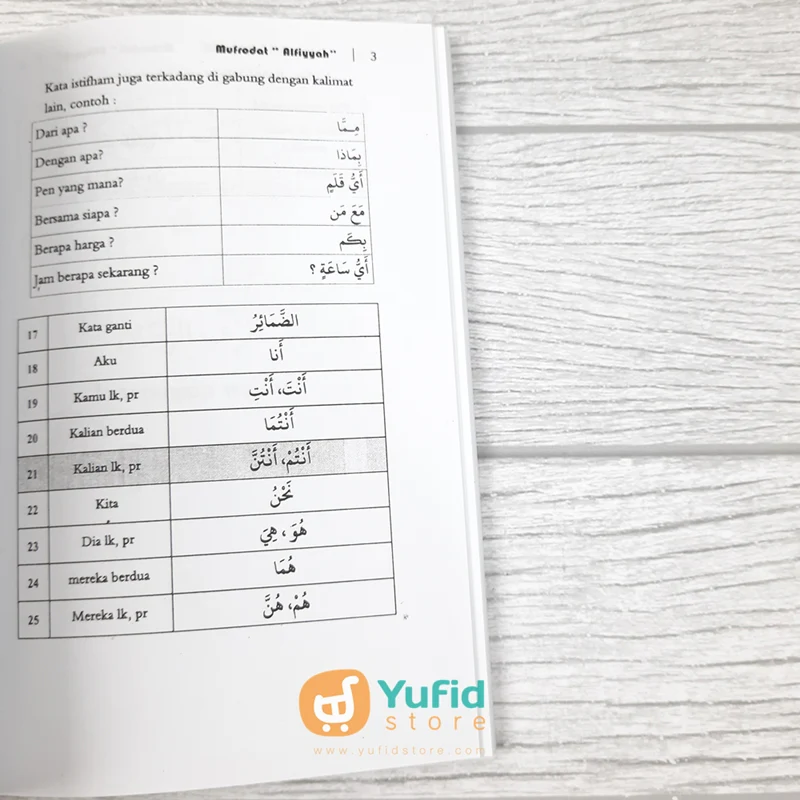 Mufrodat " Alfiyyah" | 3
Kata istifham juga terkadang di gabung dengan kalimat
lain, contoh :
Dari apa ? مِـمَّا
Dengan apa? بِمَاذَا
Pen yang mana? أَيُّ قَلَمٍ
Bersama siapa ? مَعَ مَن
Berapa harga ? بِكَم
Jam berapa sekarang ? أَيُّ سَاعَةٍ ؟
17 Kata ganti الضَّمَائِرُ
18 Aku أَنا
19 Kamu lk, pr أَنْتَ، أَنْتِ
20 Kalian berdua أَنْتُمَا
21 Kalian lk, pr أَنْتُمْ، أَنْتُنَّ
22 Kita نَحْنُ
23 Dia lk, pr هُوَ ، هِيَ
24 mereka berdua هُمَا
25 Mereka lk, pr هُمْ، هُنَّ
Yufid
store
www.yufidstore.com